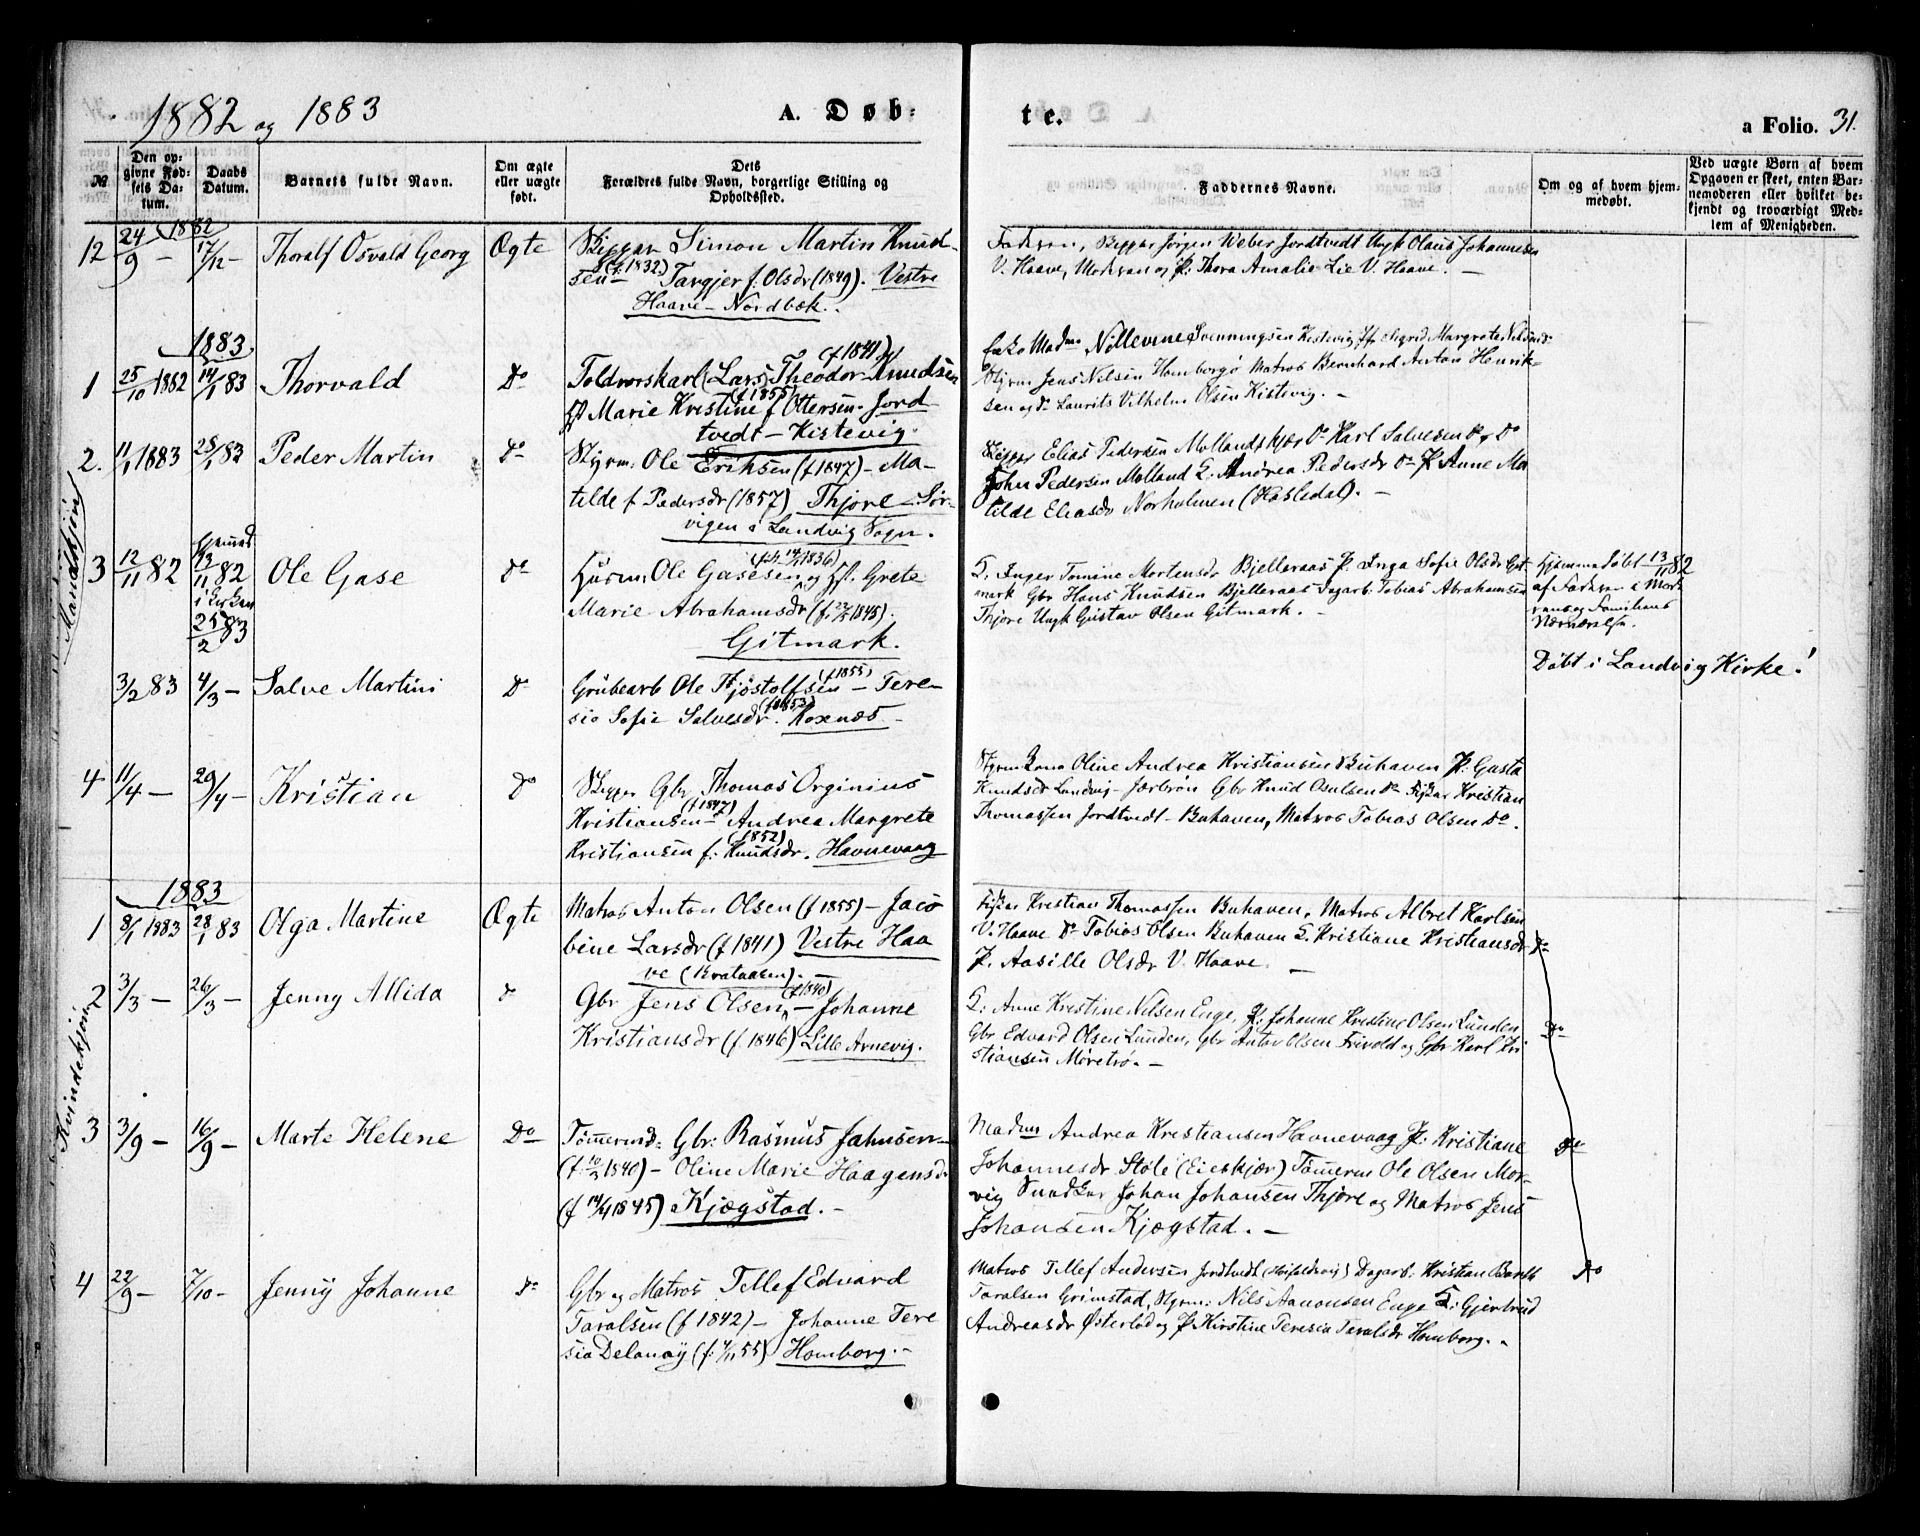 1882 og 1883
A. Døb-
№
Den op-
givne Fød-
sels Da-
tum.
Daabs
Datum.
Barnets fulde Navn.
Om ægte
eller uægte
født.
Dets
Forældres fulde Navn, borgerlige Stilling og
Opholdssted.
1882
12 24/9 — 17/12 Thoralf Osvald Georg Ægte Skipper Simon Martin Knud-
sen (f. 1832) Targjer f. Olsdr (1849). Vestre
Haave — Nordbæk.
1883
1 25/10 1882 14/1 83 Thorvald Do Toldrorskarl (Lars) Theodor Knudsen (f 1841)
Marie Kristine f Ottersen (f 1855). Jord
tvedt — Kistevig.
Mandkjøn
2. 11/1 1883 28/1 83 Peder Martin Do Styrm: Ole Eriksen (f 1847) — Ma-
tilde f. Pedersdr (1857) Thjore — Sør-
vigen i Landvig Sogn.
3 12/11 82 hjemmed 13/11 82 i Kirken 25/2 83 Ole Gase Do Husm: Ole Gasesen (fdt. 14/1 1836) og Grete
Marie Abrahamsdr (f. 1845).
Gitmark.
3/2 83 4/3 — Salve Martini Do Grubearb Ole Kjøstolfsen (f 1855) — Tere-
sia Sofie Salvesdr (f 1853). Roxnæs —
4 11/4 — 29/4 — Kristian Do Skipper Gbr Thomas Orginius
Kristiansen (f 1847) — Andrea Margrete
Kristiansen f: Knudsdr (1852). Havnevaag
1883
Kvindekjøn
1 8/1 1883 28/1 83 Olga Martine Ægte Matros Anton Olsen (f 1855) — Jaco
bine Larsdr (f 1841) Vestre Haa
ve (Brataasen). —
2 3/3 — 26/3 — Jenny Allida Do Gbr Jens Olsen (f 1840) — Johanne
Kristiansdr (f. 1846) Lille Arnevig.
3 3/9 — 16/9 — Marte Helene Do Tømmermd: Gbr: Rasmus Jahnsen
(f. 10/2 1840) — Oline Marie Haagensdr
(f 14/4 1845) Kjægstad. —
4 22/9 — 7/10 — Jenny Johanne Do Gbr og Matros Tellef Edvard
Taralsen (f 1842) — Johanne Tere
sia Delanøy (f: 7/11 55) Homborg. —
te.
a Folio. 31.
Faddernes Navne.
Om og af hvem hjem-
medøbt.
Ved uægte Børn af hvem
Opgaven er skeet, enten Bar-
nemoderen eller hvilket be-
kjendt og troværdigt Med-
lem af Menigheden.
Faderen, Skipper Jørgen Weber Jordtvedt Ungk Olaus Johannesen
V. Haave, Moderen og P. Thora Amalie Lie V. Haave. —
Enke Madme Nillevine Svenningsen Kistevig Sigrid Margrete
Styrm Jens Nilsen Homborgø Matros Bernhard Anton Henrik-
sen og Do Laurits Vilhelm Olsen Kistevig. —
Skipper Elias Pedersen Mollandskjær Do Karl Salvesen Do
John Pedersen Molland Andrea Pedersdr Do P Anne Ma
tilde Eliasdr Norholmen (Hasledal). —
Inger Tomine Mortensdr Bjelleraas P. Inga Sofie Olsdr Git
mark Gbr Hans Knudsen Bjelleraas Dagarb. Tobias Abrahamsen
Thjore Ungk Gustav Olsen Gitmark. —
Hjemmedøbt 13/11 82
af Faderen i Mode
rens og Familiens
Nærværelse.
Døbt i Landvig Kirke!
Styrm Kone Oline Andrea Kristiansen Buhaven P. Gusta
Knudsdr Landvig — Gbr Knud Do Fisker Kristian
Thomassen Jordtvedt — Buhaven, Matros Tobias Olsen Do.
Fisker Kristian Thomassen Buhaven, Matros Albret Karlsen
V. Haave Do Tobias Olsen Buhaven Kristiane Kristiansdr Do
P. Aasille Olsdr V. Haave. —
Anne Kristine Nilsen Enge, P. Johanne Kristine Olsen Lunden
Gbr Edvard Olsen Lunden, Gbr Antov Olsen Frivold og Gbr Karl Kri
stiansen Møretrø. —
Do
Madme Andrea Kristiansen Havnevaag P. Kristiane
Johannesdr Støle (Eieskjær) Tømmerm Ole Olsen Mor-
vig Snedker Johan Johansen Thjore og Matros Jens
Johansen Kjægstad. —
Do
Matros Tellef Andersen Jordtvedt Dagarb. Kristian Barth
Taralsen Grimstad, Styrm: Nils Aanonsen Enge Gjertrud
Andreasdr Østerlod og P. Kirstine Teresia Taralsdr Homborg. —
Do